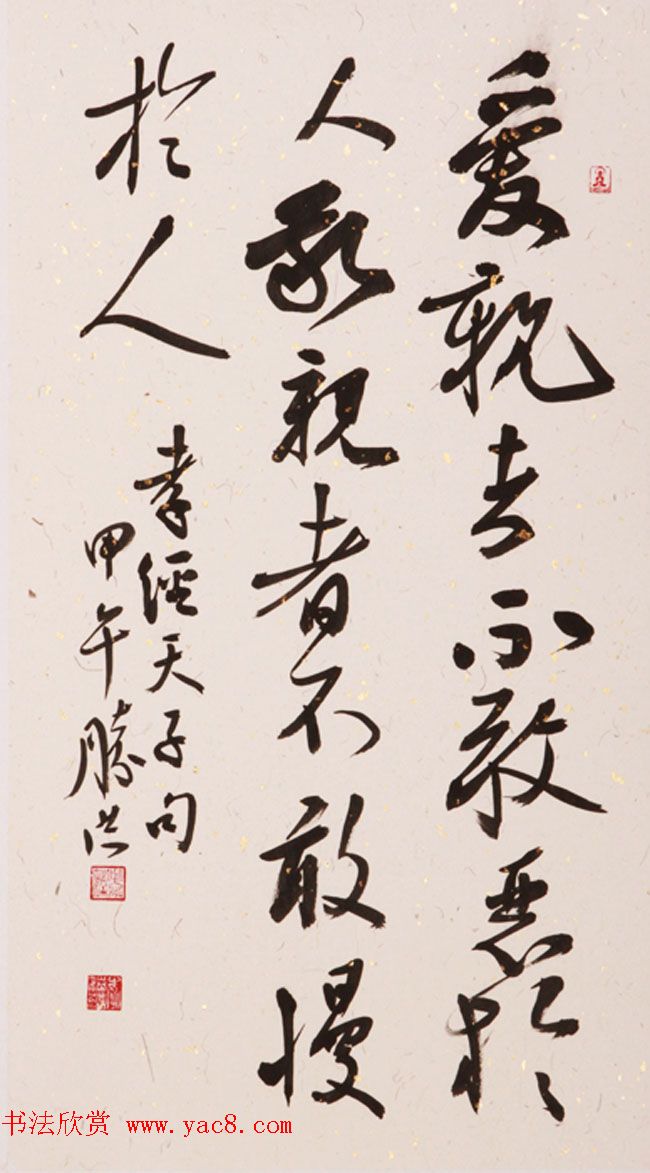 愛親者不敢惡於
人敬親者不敢慢
於人
孝經天子句
甲午勝洪
书法欣赏 www.yac8.com